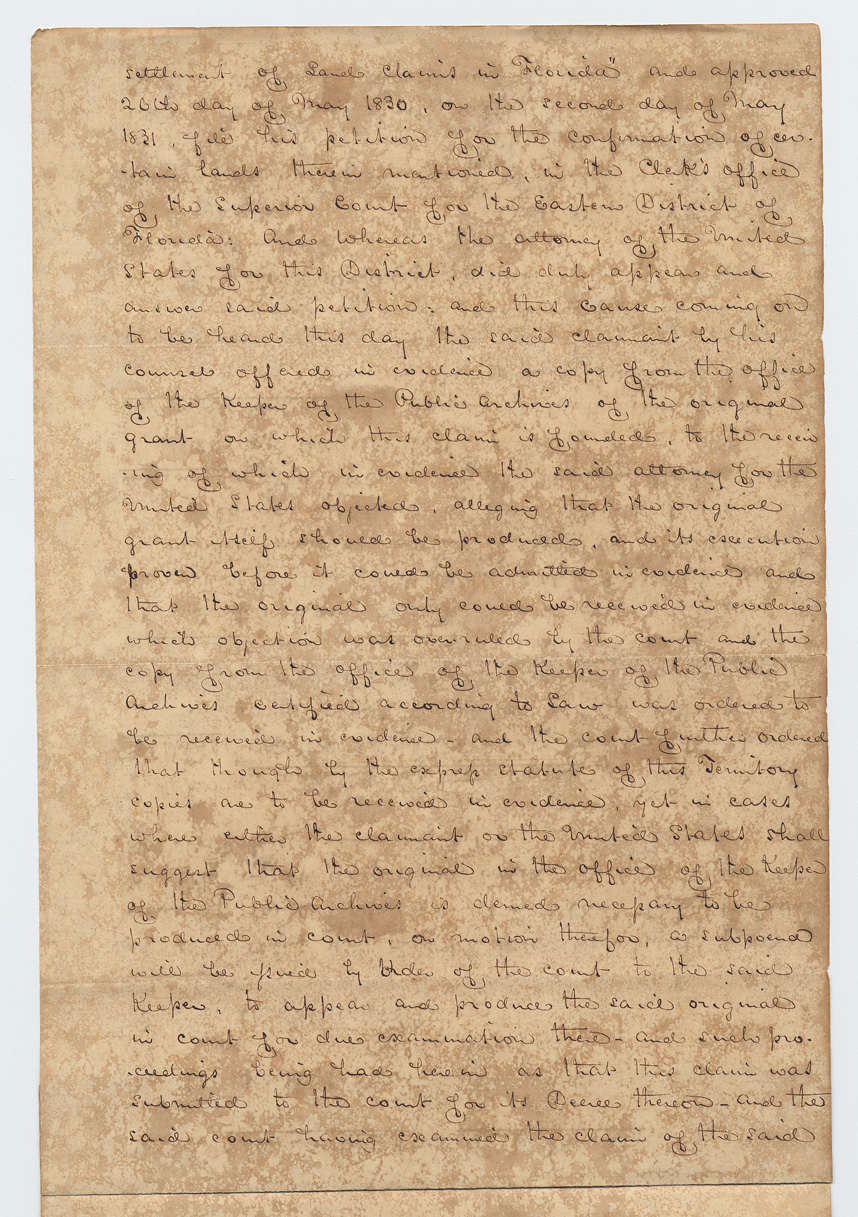 settlement of Land claims in Florida" and approved
26th day of May 1830, on the second day of May
1831, file his petition for the confirmation of cer-
-tain lands therein mentioned, in the Clerk's office
of the Superior Court for the Eastern District of
Florida: And whereas the attorney of the United
States for this District, did duly appear and
answer said petition: and this cause coming on
to be heard this day the said claimant by his
counsel offered in evidence a copy from the office
of the Keeper of the Public Archives of the original
grant on which this claim is founded, to the receiv
-ing of which in evidence the said attorney for the
United States objected, alleging that the original
grant itself should be produced, and its execution
proven before it could be admitted in evidence and
that the original only could be received in evidence
which objection was over-ruled by the court and the
copy from the office of the Keeper of the Public
Archives certified according to Law was ordered to
be received in evidence - and the court further ordered
that though by the express statute of this Territory
copies are to be received in evidence, yet in cases
where either the claimant or the United States shall
suggest that the original in the office of the Keeper
of the Public Archives is deemed necessary to be
produced in court, on motion therefor, a subpoena
will be issued by order of the court to the said
Keeper, to appear and produce the said original
in court for due examination there - and such pro-
-ceedings being had herein as that this claim was
submitted to the court for its Decree thereon - and the
said court having examined the claim of the said